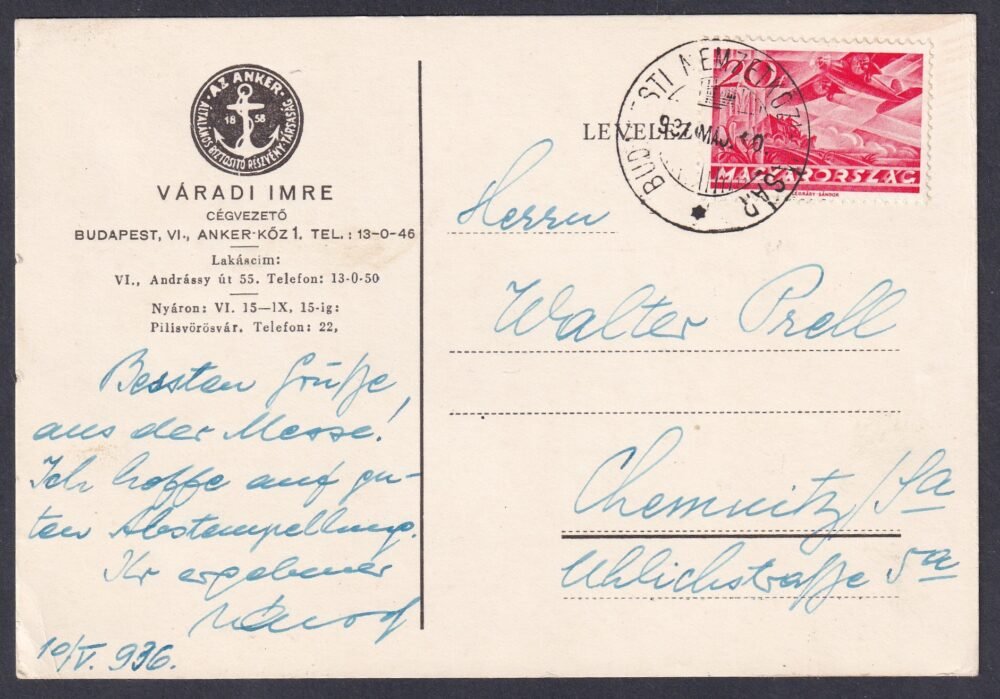 AZ ANKER
ÁLTALÁNOS BIZTOSITÓ RÉSZVÉNY-TÁRSASÁG
1858
VÁRADI IMRE
CÉGVEZETŐ
BUDAPEST, VI., ANKER-KŐZ 1. TEL.: 13-0-46
Lakáscim:
VI., Andrássy út 55. Telefon: 13-0-50
Nyáron: VI. 15—IX, 15-ig:
Pilisvörösvár. Telefon: 22,
Besten Grüße,
aus der Messe!
Ich hoffe auf gu-
ten Abstempellung.
Ihr ergebener
10/V. 936.
LEVELEZ
20
MAGYARORSZÁG
LÉGRÁDY SÁNDOR
BUDAPESTI NEMZETKÖZI VÁSÁR
MÁJ. 10
Herrn
Walter Prell
Chemnitz/Sa
Uhlichstraße 5a